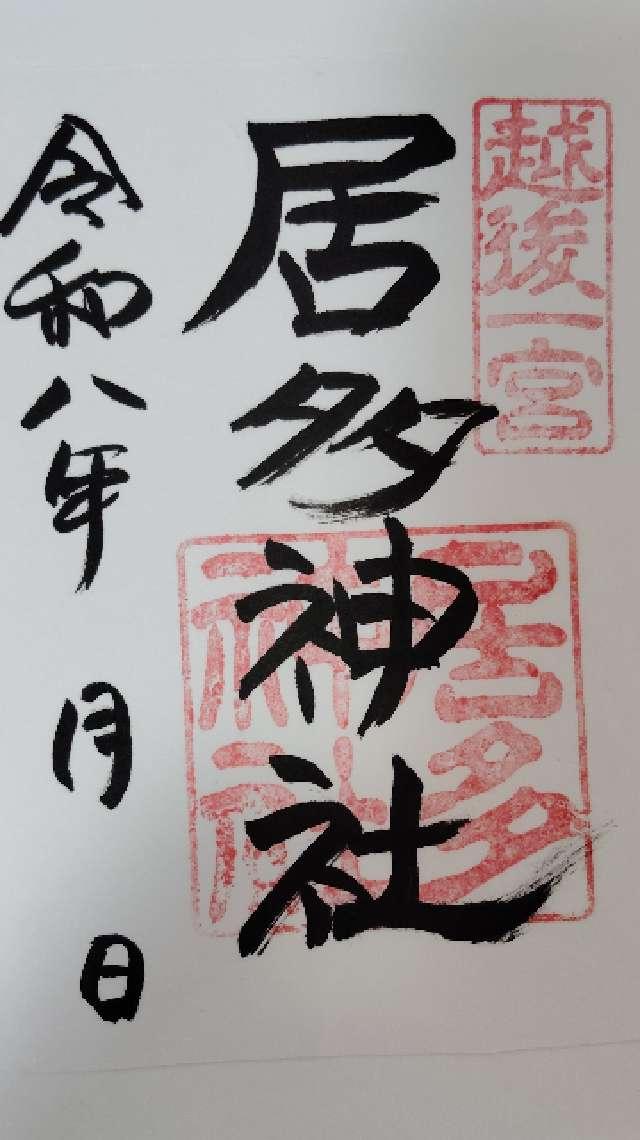 越後一宮
居多神社
居多
神社
令和八年 月 日